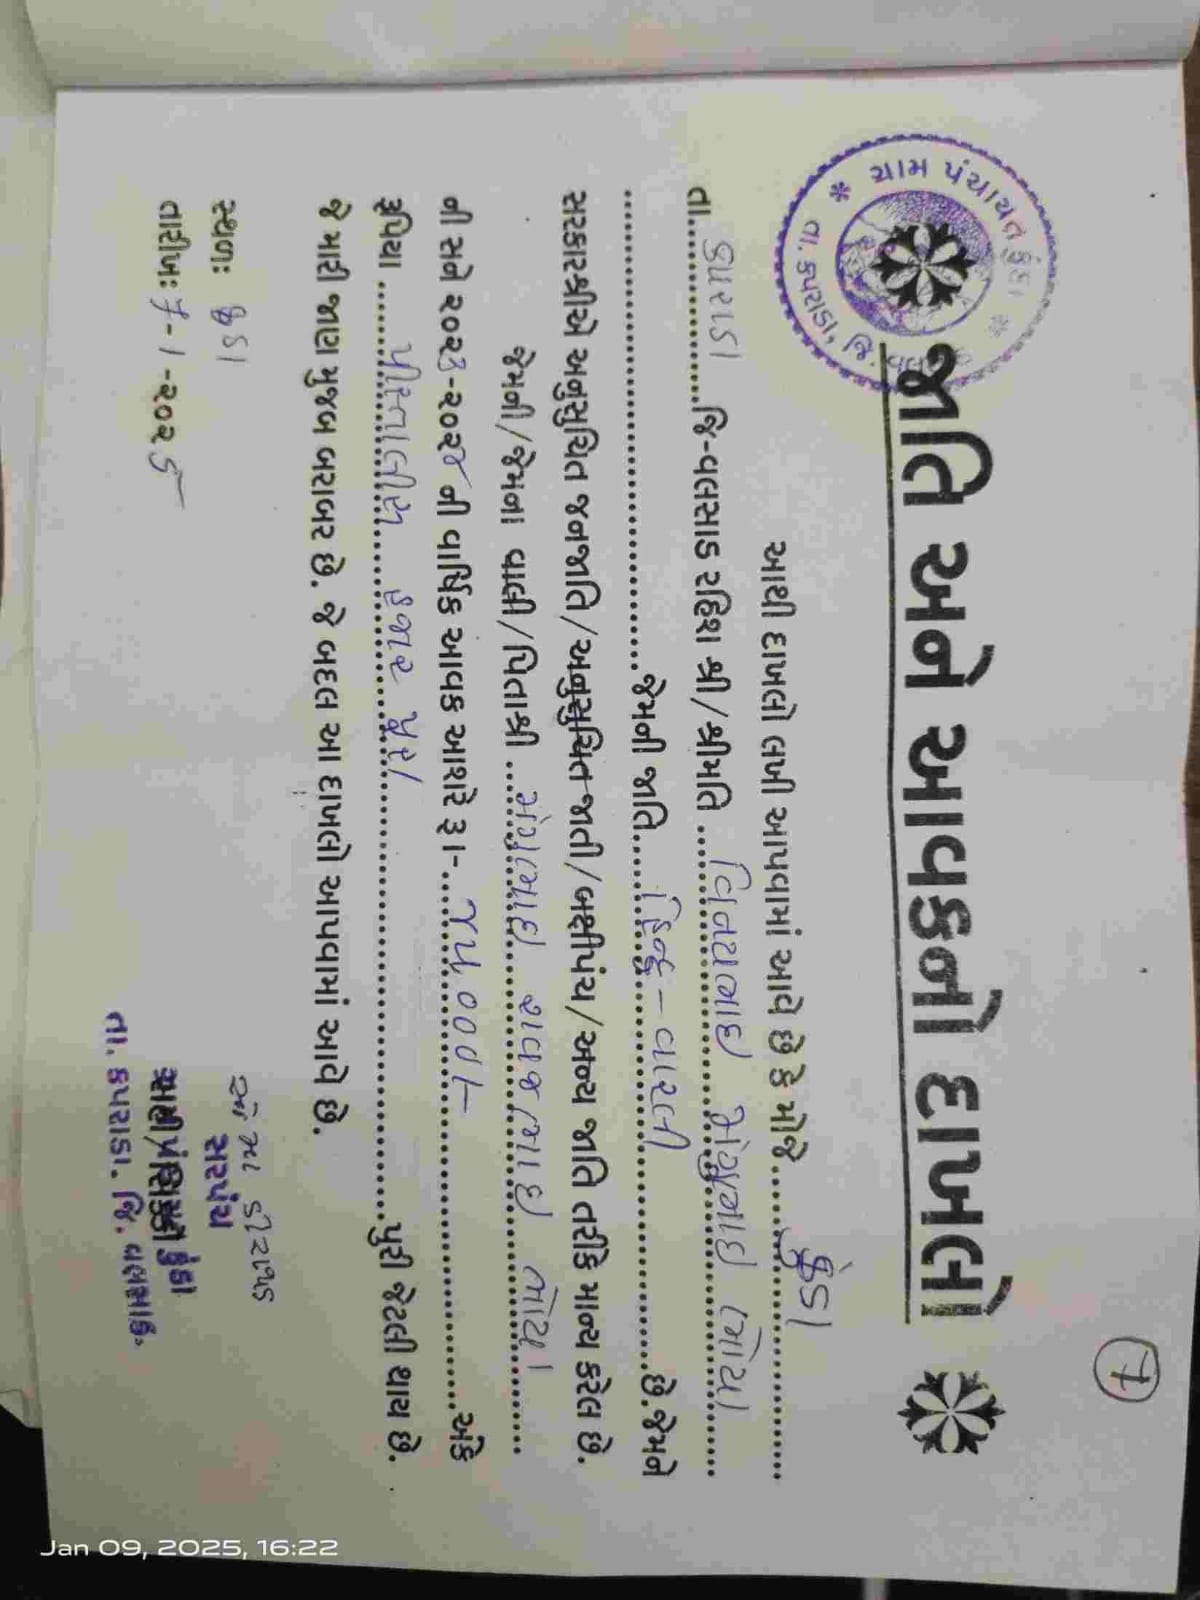 7
જાતિ અને આવકનો દાખલો
ગ્રામ પંચાયત કુંડા
તા. કપરાડા, જિ
આથી દાખલો લખી આપવામાં આવે છે કે મોજે કુંડા
તા. કપરાડા જિ-વલસાડ રહિશ શ્રી/શ્રીમતિ વિનયભાઇ મંગુભાઇ ભોયા
જેમની જાતિ હિન્દુ - વારલી છે.જેમને
સરકારશ્રીએ અનુસુચિત જનજાતિ/અનુસુચિત જાતી/બક્ષીપંચ/અન્ય જાતિ તરીકે માન્ય કરેલ છે.
જેમની/જેમના વાલી/પિતાશ્રી મંગુભાઇ ભોયા
ની સને ૨૦૨૩-૨૦૨૪ ની વાર્ષિક આવક આશરે રૂા- ૪૫૦૦૦/- અંકે
રૂપિયા પીસ્તાલીસ હજાર પુરા પુરી જેટલી થાય છે.
જે મારી જાણ મુજબ બરાબર છે. જે બદલ આ દાખલો આપવામાં આવે છે.
સ્થળ: કુંડા
તારીખ: ૭-૧-૨૦૨૫
સરપંચ
કુંડા
તા. કપરાડા. જિ. વલસાડ.
Jan 09, 2025, 16:22